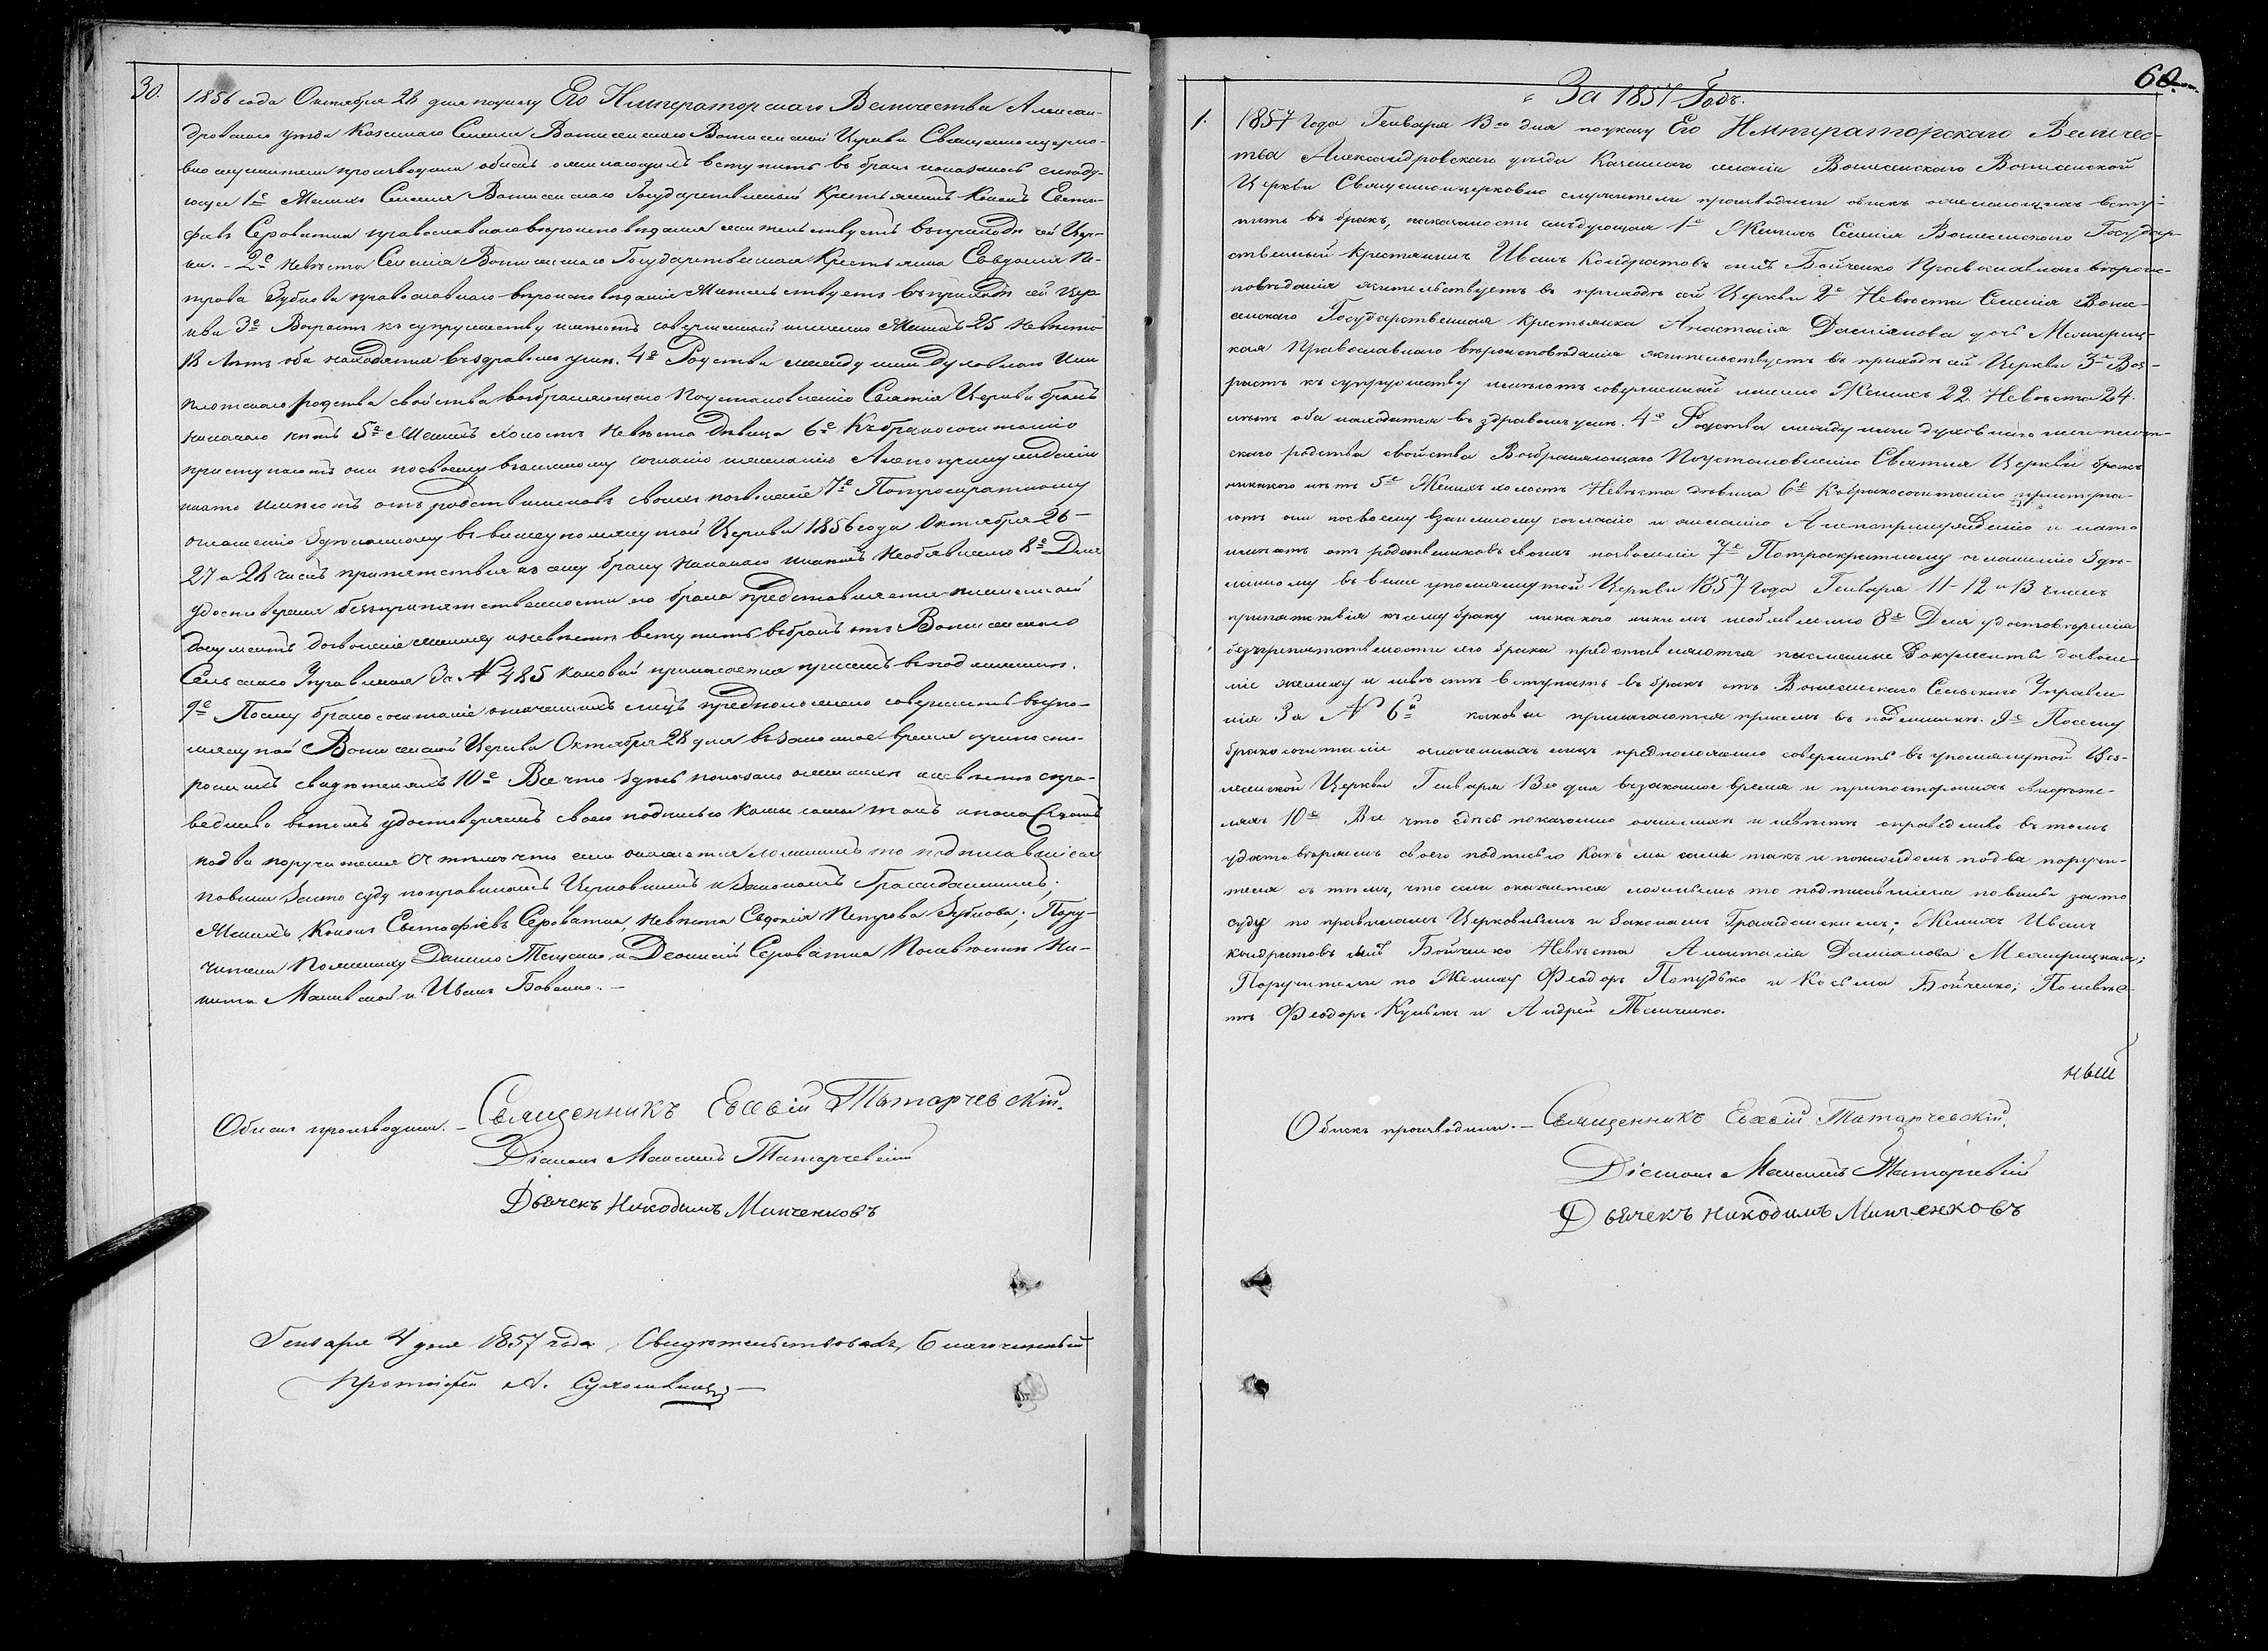 30.
1856 года Октября 28 дня по указу Его Императорскаго Величества Алексан-
дровскаго уезда Казеннаго Селения Вознесенскаго Вознесенской Церкви Священноцерко-
вно служители производили обыскъ о желающихъ вступить въ бракъ показалось следу-
ющее 1е Женихъ Селения Вознесенскаго Государственный Крестьянинъ Кононъ Евста-
фиевъ Сероватка православнаго вероисповедания жительствуетъ въ приходе сей Цер-
кви. – 2е Невеста Селения Вознесенскаго Государственная Крестьянка Евдокия Пе-
трова Зубкова православнаго вероисповедания Жительствуетъ въ приходе сей Цер-
кви 3е Возрастъ къ супружеству имеютъ совершенный именно Женихъ 25 Невеста
18 летъ оба находятся въ здравомъ уме. 4е Родства между ими Духовнаго или
плотскаго родства свойства возбраняющаго По установлению Святыя Церкви бракъ
никакого нетъ 5е Женихъ холостъ Невеста Девица 6е Къ бракосочетанию
приступаютъ они по своему взаимному согласию и желанию А не по принуждению
и на то имеютъ отъ родственниковъ своихъ позволение 7е По троекратному
оглашению зделанному въ вышеупомянутой Церкви 1856 года Октября 26–
27 и 28 числъ препятствия къ сему браку никакого никемъ Необъявлено 8е Для
удостоверения безпрепятственности сего брака представляется письменный
документъ дозволение жениху и невесте вступить въ бракъ отъ Вознесенскаго
Сельскаго Управления За № 485 каковый прилагается присемъ въ подлиннике.
9е Посему бракосочетание означенныхъ лицъ предположено совершить въ упо-
мянутой Вознесенской Церкви Октября 28 дня въ законное время при посто-
роннихъ свидетеляхъ 10е Все что здесь показано о женихе и невесте спра-
ведливо въ томъ удостоверяемъ своею подписью Какъ сами такъ и по каждомъ
по два поручителя Съ темъ что если окажется ложнымъ то подписавшиеся
повинны за то суду по правиламъ Церковнымъ и Законамъ Гражданскимъ;
Женихъ Кононъ Евстафиевъ Сероватка, Невеста Евдокия Петрова Зубкова; Пору-
чители По жениху Данило Тещенко и Дионисий Сероватка По невесте Ни-
кита Маневской и Иванъ Бовенко. –
Обыскъ производили. – Священникъ Евсевій Татарчевскій.
Діаконъ Максимъ Татарчевскій
Дьячекъ Никодимъ Минченковъ
Генваря 4 дня 1857 года, Свидѣтельствовалъ, Благочинный
Протоіерей

60.
За 1857 Годъ.
1.
1857 Года Генваря 13го дня по указу Его Императорскаго Величес-
тва Александровскаго уѣзда Казеннаго селенія Вознесенскаго Вознесенской
Церкви Священноцерковно служители производили обыскъ о желающихъ всту-
пить въ бракъ, показалось слѣдующая 1е Женихъ Селенія Вознесенскаго Государ-
ственный Крестьянинъ Иванъ Кондратовъ сынъ Бойченко Православнаго вѣроис-
повѣданія жительствуетъ въ приходѣ сей Церкви 2е Невѣста Селенія Возне-
сенскаго Государственная Крестьянка Анастасія Даміянова дочь Межирец-
кая Православнаго вѣроисповѣданія жительствуетъ въ приходѣ сей Церкви 3е Воз-
растъ къ супружеству имѣютъ совершенный именно Женихъ 22. Невѣста 24.
лѣтъ оба находятся въ здравомъ умѣ. 4е Родства между ими духовнаго или плот-
скаго родства свойства Возбраняющаго По установленію Святыя Церкви бракъ
никакого нѣтъ 5е Женихъ холостъ Невѣста дѣвица 6е Къ бракосочетанію приступа-
ютъ они по своему взаимному согласію и желанію А не по принужденію и на то
имѣютъ отъ родственниковъ своихъ позволеніе 7е По троекратному оглашенію здѣ-
ланному въ выше упомянутой Церкви 1857 года Генваря 11–12 и 13 числъ
препятствія къ сему браку никакого никемъ необъявлено 8е Для удостовѣренія
безпрепятственности сего брака представляются писменные Документы дозволе-
ніе жениху и невѣстѣ вступить въ бракъ отъ Вознесенскаго Сельскаго Управле-
нія За № 6й каковые прилагаются присемъ въ подлинникѣ. 9е Посему
бракосочитаніе означенныхъ лицъ предположено совершить въ упомянутой Воз-
несенской Церкви Генваря 13го дня въ законное время и при постороннихъ свидѣте-
ляхъ 10е Все что здѣсь показанно о женихѣ и невѣстѣ справедливо въ томъ
удостовѣряемъ своею подписью Какъ мы сами такъ и по каждомъ по два поручи-
теля съ тѣмъ, что если окажется ложнымъ то подписавшіеся повинны за то
суду по правиламъ Церковнымъ и Законамъ Гражданскимъ; Женихъ Иванъ
Кондратовъ сынъ Бойченко Невѣста Анастасія Даміянова Межирицкая;
Поручители по Жениху Феодоръ Попудько и Козьма Бойченко; По невѣс-
тѣ Феодоръ и Андрей
ный
Обыскъ производили. – Священникъ Евсевій Татарчевскій.
Діаконъ Максимъ Татарчевскій
Дьячекъ Никодимъ Минченковъ